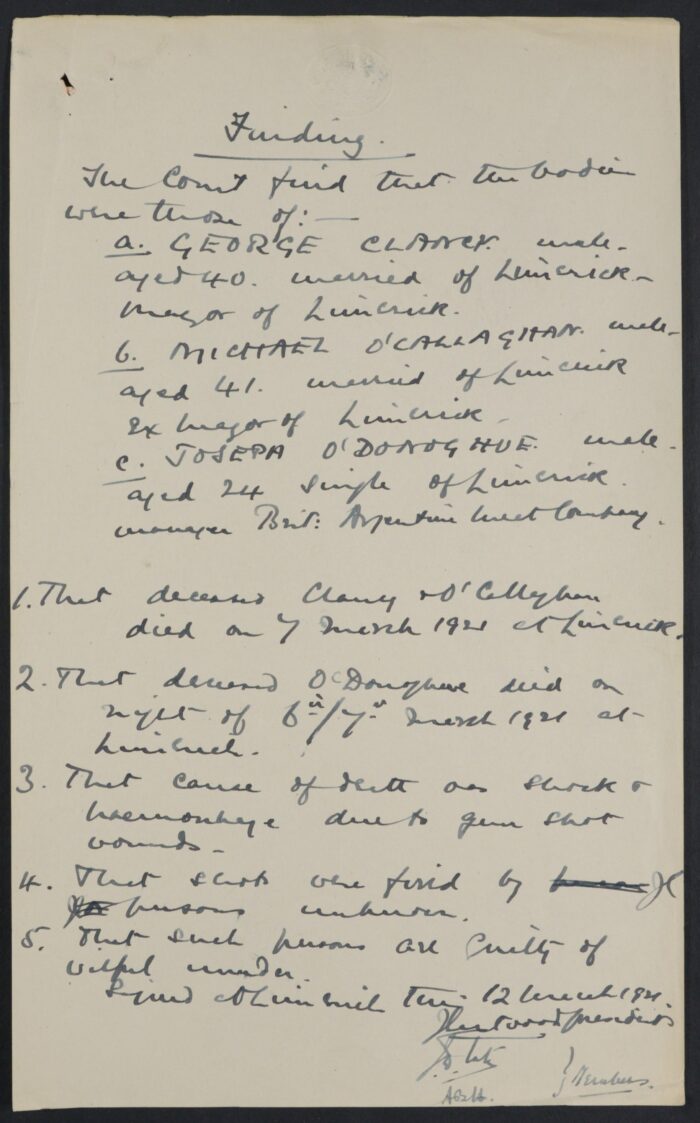 Finding.
The Court find that the bodies
were those of:—
a. GEORGE CLANCY. male-
aged 40. married of Limerick-
Mayor of Limerick.
b. MICHAEL O'CALLAGHAN. male-
aged 41. married of Limerick
Ex Mayor of Limerick-
c. JOSEPH O'DONOGHUE. male-
aged 24 single of Limerick.
manager Brit: Argentine Meat Company.
1. That deceased Clancy & O'Callaghan
died on 7 March 1921 at Limerick.
2. That deceased O'Donoghue died on
night of 6th/7th March 1921 at
Limerick.
3. That cause of death was shock &
haemorrhage due to gun shot
wounds-
4. That shots were fired by
persons unknown.
5. That such persons are guilty of
wilful murder.
Signed at Limerick this 12 March 1921.
president
Members.